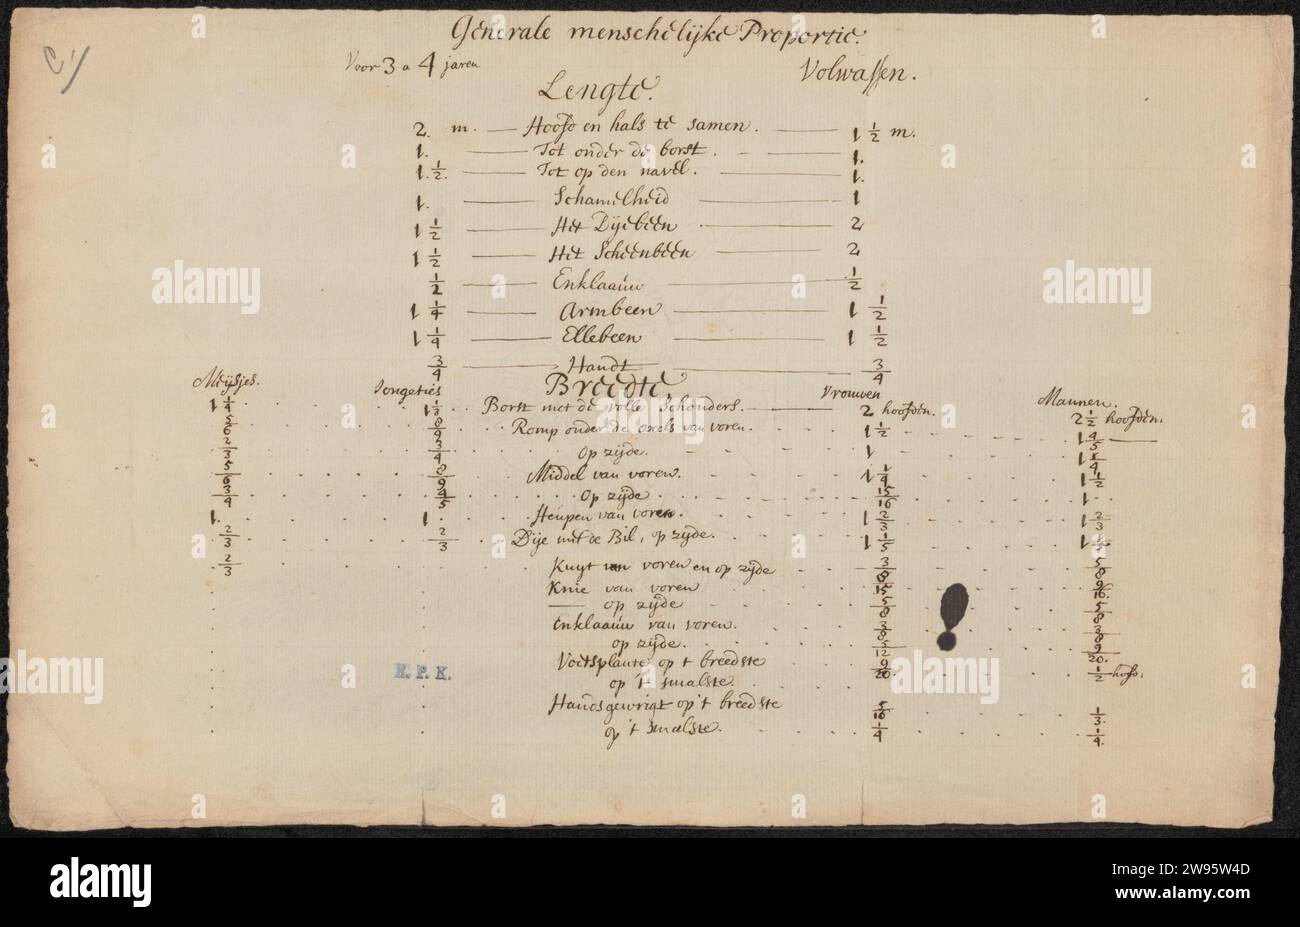 Generale menschelijke Proportie.
Voor 3 a 4 jaren Volwassen.
Lengte.
2. m. Hoofd en hals te samen. 1 1/2 m.
1. Tot onder de borst. 1.
1. 1/2. Tot op den navel. 1.
1. Schamelheid 1
1 1/2 Het Dijebeen 2
1 1/2 Het Scheenbeen 2
1/2 Enklaauw 1/2
1 1/4 Armbeen 1 1/2
1 1/4 Ellebeen 1 1/2
3/4 Handt 3/4
Breedte
Meijsjes. Jongeties Vrouwen Mannen.
1 1/4 Borst met de volle Schouders. 2 hoofden. 2 1/2 hoofden.
5/6 8/9 Romp onder de oxels van voren. 1 1/2 1 4/5
2/3 3/4 Op zijde. 1 1 1/4
5/6 8/9 Middel van voren. 1 1/4 1 1/2
3/4 4/5 Op zijde 15/16 1
1. 1. Heupen van voren. 1 2/3 1 2/3
2/3 2/3 Dije met de Bil, op zijde. 1 1/5 1
2/3 Kuyt van voren en op zijde 5/8
Knie van voren 9/16.
op zijde 5/8 5/8
Enklaauw van voren. 3/8 3/8
op zijde. 5/12 9/20.
Voetsplante op t breedste 9/20. 1/2 hoofd.
op 't smalste.
Handsgewrigt op 't breedste 5/16 1/3.
op 't smalste. 1/4 1/4.
R. P. K.
alamy
Image ID: 2W95W4D
www.alamy.com